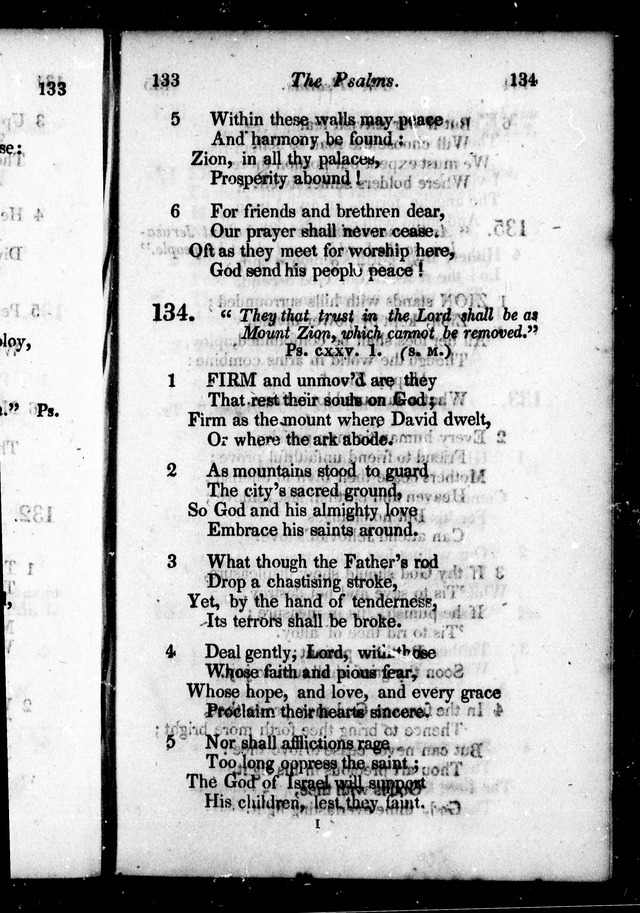 133
se:
loy,
." Ps.
133 The Psalms. 134
5 Within these walls may peace
And harmony be found :
Zion, in all thy palaces,
Prosperity abound !
6 For friends and brethren dear,
Our prayer shall never cease.
Oft as they meet for worship here,
God send his people peace !
134. " They that trust in the Lord shall be as
Mount Zion, which cannot be removed."
Ps. cxxv. 1. (s. m.)
1 FIRM and unmov'd are they
That rest their souls on God;
Firm as the mount where David dwelt,
Or where the ark abode.
2 As mountains stood to guard
The city's sacred ground,
So God and his almighty love
Embrace his saints around.
3 What though the Father's rod
Drop a chastising stroke,
Yet, by the hand of tenderness,
Its terrors shall be broke.
4 Deal gently, Lord, with those
Whose faith and pious fear,
Whose hope, and love, and every grace
Proclaim their hearts sincere.
5 Nor shall afflictions rage
Too long oppress the saint ;
The God of Israel will support
His children, lest they faint.
I